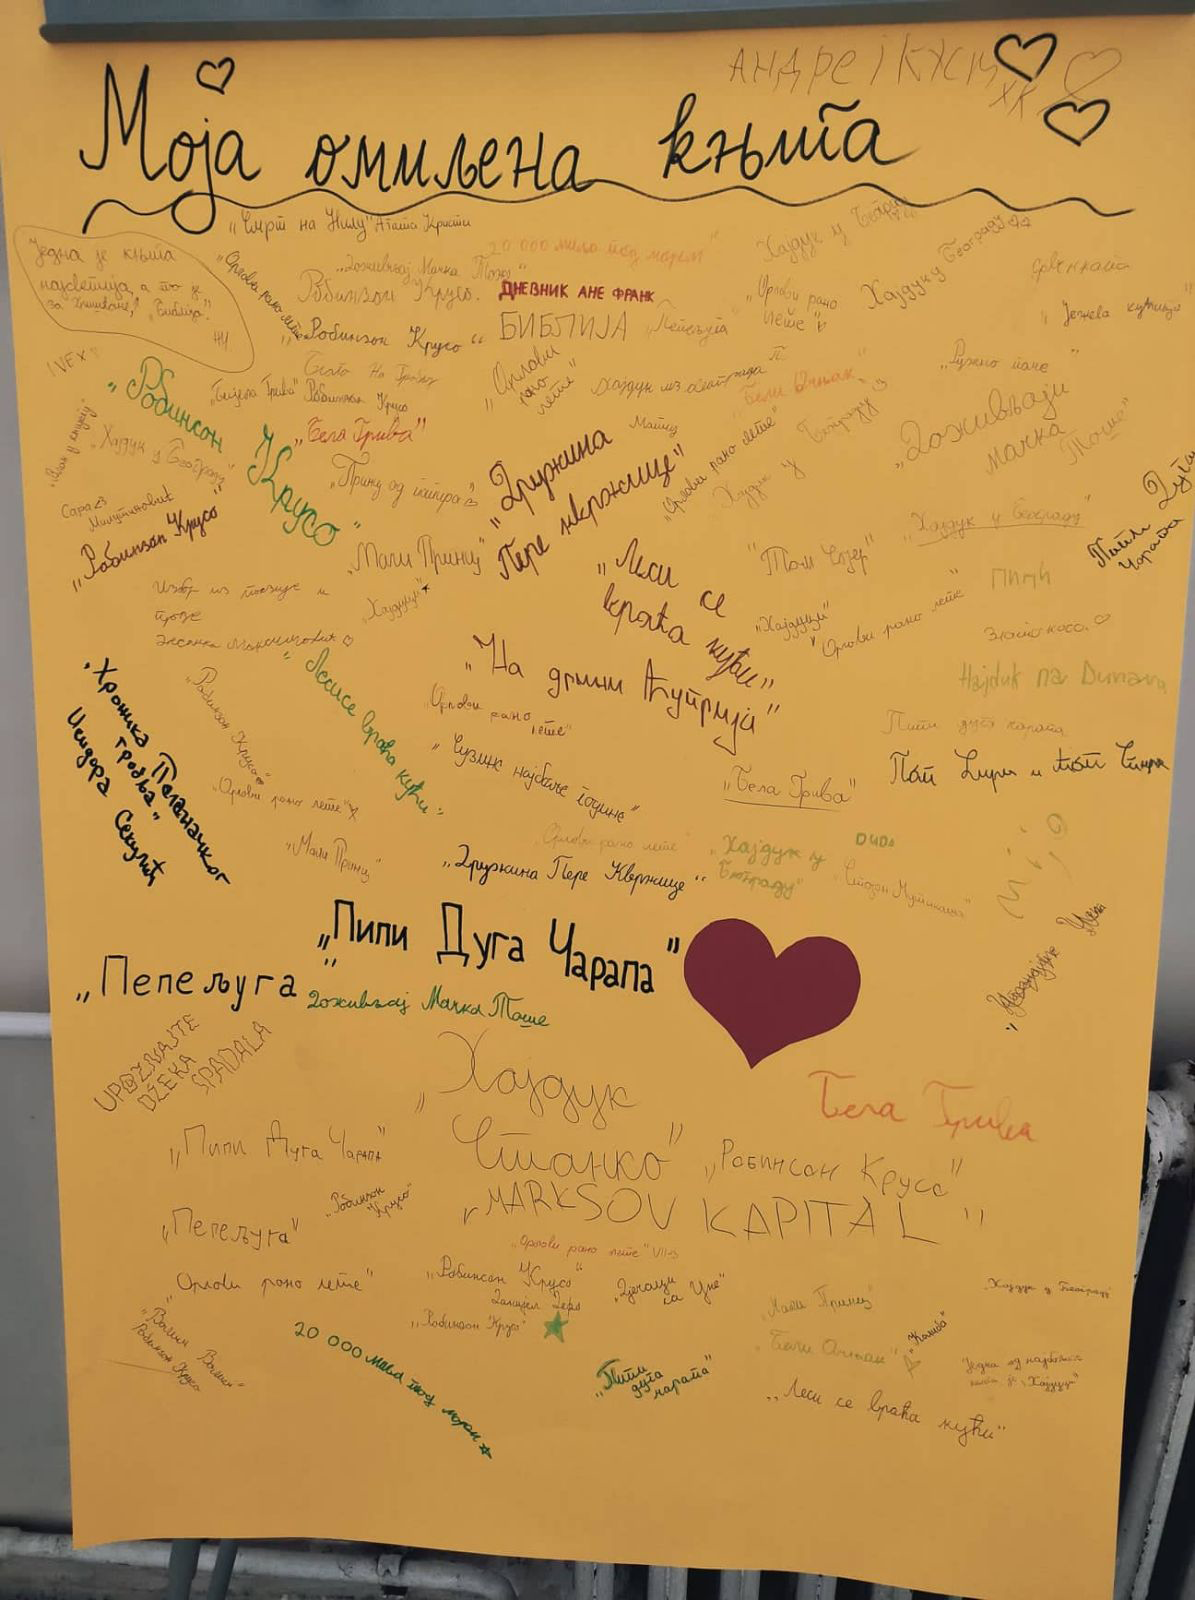 Моја омиљена књига
„Смрт на Нилу" Агата Кристи
Једна је књига
најсветија, а то је
„Библија".
„Орлови рано лете"
„Доживљај Мачка Тоше"
20 000 миља под морем"
Хајдук у
Хајдук у Београду
Робинзон Крусо.
ДНЕВНИК АНЕ ФРАНК
„Орлови рано
лете"
„Јежева кућица"
„Робинзон Крусо"
БИБЛИЈА
„Пепељуга
„Ружно паче"
„Робинсон
Крусо"
Робинзон Крусо
„Орлови
рано
лете"
„Бели Очњак"
„Бела Грива"
„Хајдук у Београду"
„Принц од папира
„Дружина
Пере Квржице"
„Орлови рано лете"
Хајдук у
Београду
„Доживљаји
мачка
Тоше"
Сара
Милутиновић
„Робинзон Крусо"
„Хајдук у Београду"
Пипи Дуга
Чарапа
„Мали Принц"
„Леси се
враћа кући"
„Том Сојер"
ПИПИ
Избор из поезије и
прозе
„Хајдуци"
„Хајдуци"
„Орлови рано лете"
Златокоса
„На дрини ћуприја"
Најдuk na Dunavu
„Хроника Паланачког
гробља"
Исидора Секулић
„Робинзон Крусо"
„Лесисе враћа кући"
„Орлови рано
лете"
Пипи дуга чарапа
Поп Ћира и поп Спира
„Орлови рано лете"
најбоље године"
„Бела Грива"
„Мали Принц"
„Орлови рано лете"
„Дружина Пере Квржице"
„Хајдук у
Београду"
DUDA
„Пипи Дуга Чарапа"
„Пепељуга"
Доживљај Мачка Тоше
UPOZNAJTE
DŽEKA
SPADALA
„Хајдук
Станко"
Бела Грива
„Пипи Дуга Чарапа"
„Робинсон Крусо"
„Робинзон
Крусо"
„MARKSOV KAPITAL"
„Пепељуга"
„Орлови рано лете" VII-3
„Орлови рано лете"
„Робинсон Крусо"
„Дечаци
са Уне"
„Хајдук у Београду"
„Робинзон Крусо"
„Мали Принц"
Робинзон Крусо
20 000 миља под морем
„Бели Очњак"
„Пипи
дуга
чарапа"
„Једна од најбољих
књига је „Хајдуци"
„Леси се враћа кући"